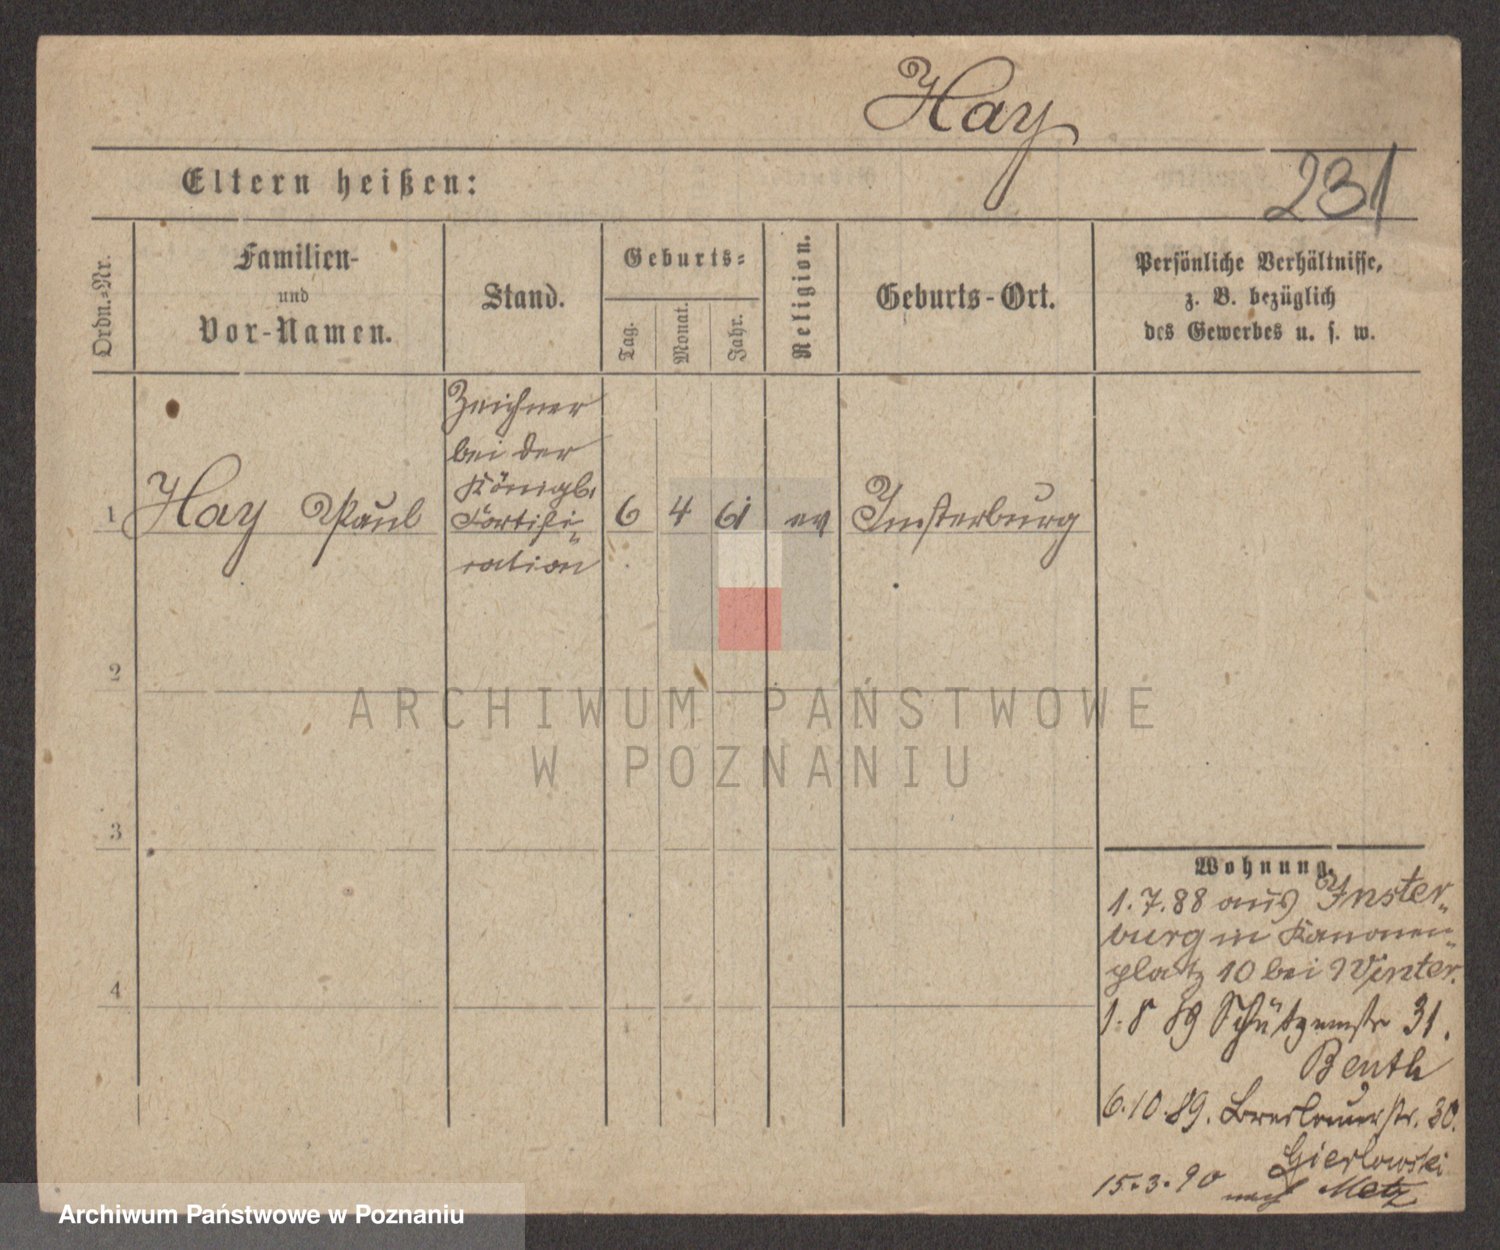 Hay
231
Eltern heißen:
Ordn.-Nr.
Familien-
und
Vor-Namen.
Stand.
Geburts-
Tag.
Monat.
Jahr.
Religion.
Geburts-Ort.
Persönliche Verhältnisse,
z. B. bezüglich
des Gewerbes u. s. w.
1
Hay Paul
Zeichner
bei der
Königl.
Fortifi-
cation
6
4
61
ev
Insterburg
2
3
4
Wohnung.
1.7.88 aus Inster-
burg in Kanonen-
platz 10 bei Winter.
1.8 89 Schützenstr 31.
Benth
6.10.89. Breslauerstr. 30.
Gierlowski
15.3.90 nach Metz
ARCHIWUM PAŃSTWOWE
W POZNANIU
Archiwum Państwowe w Poznaniu